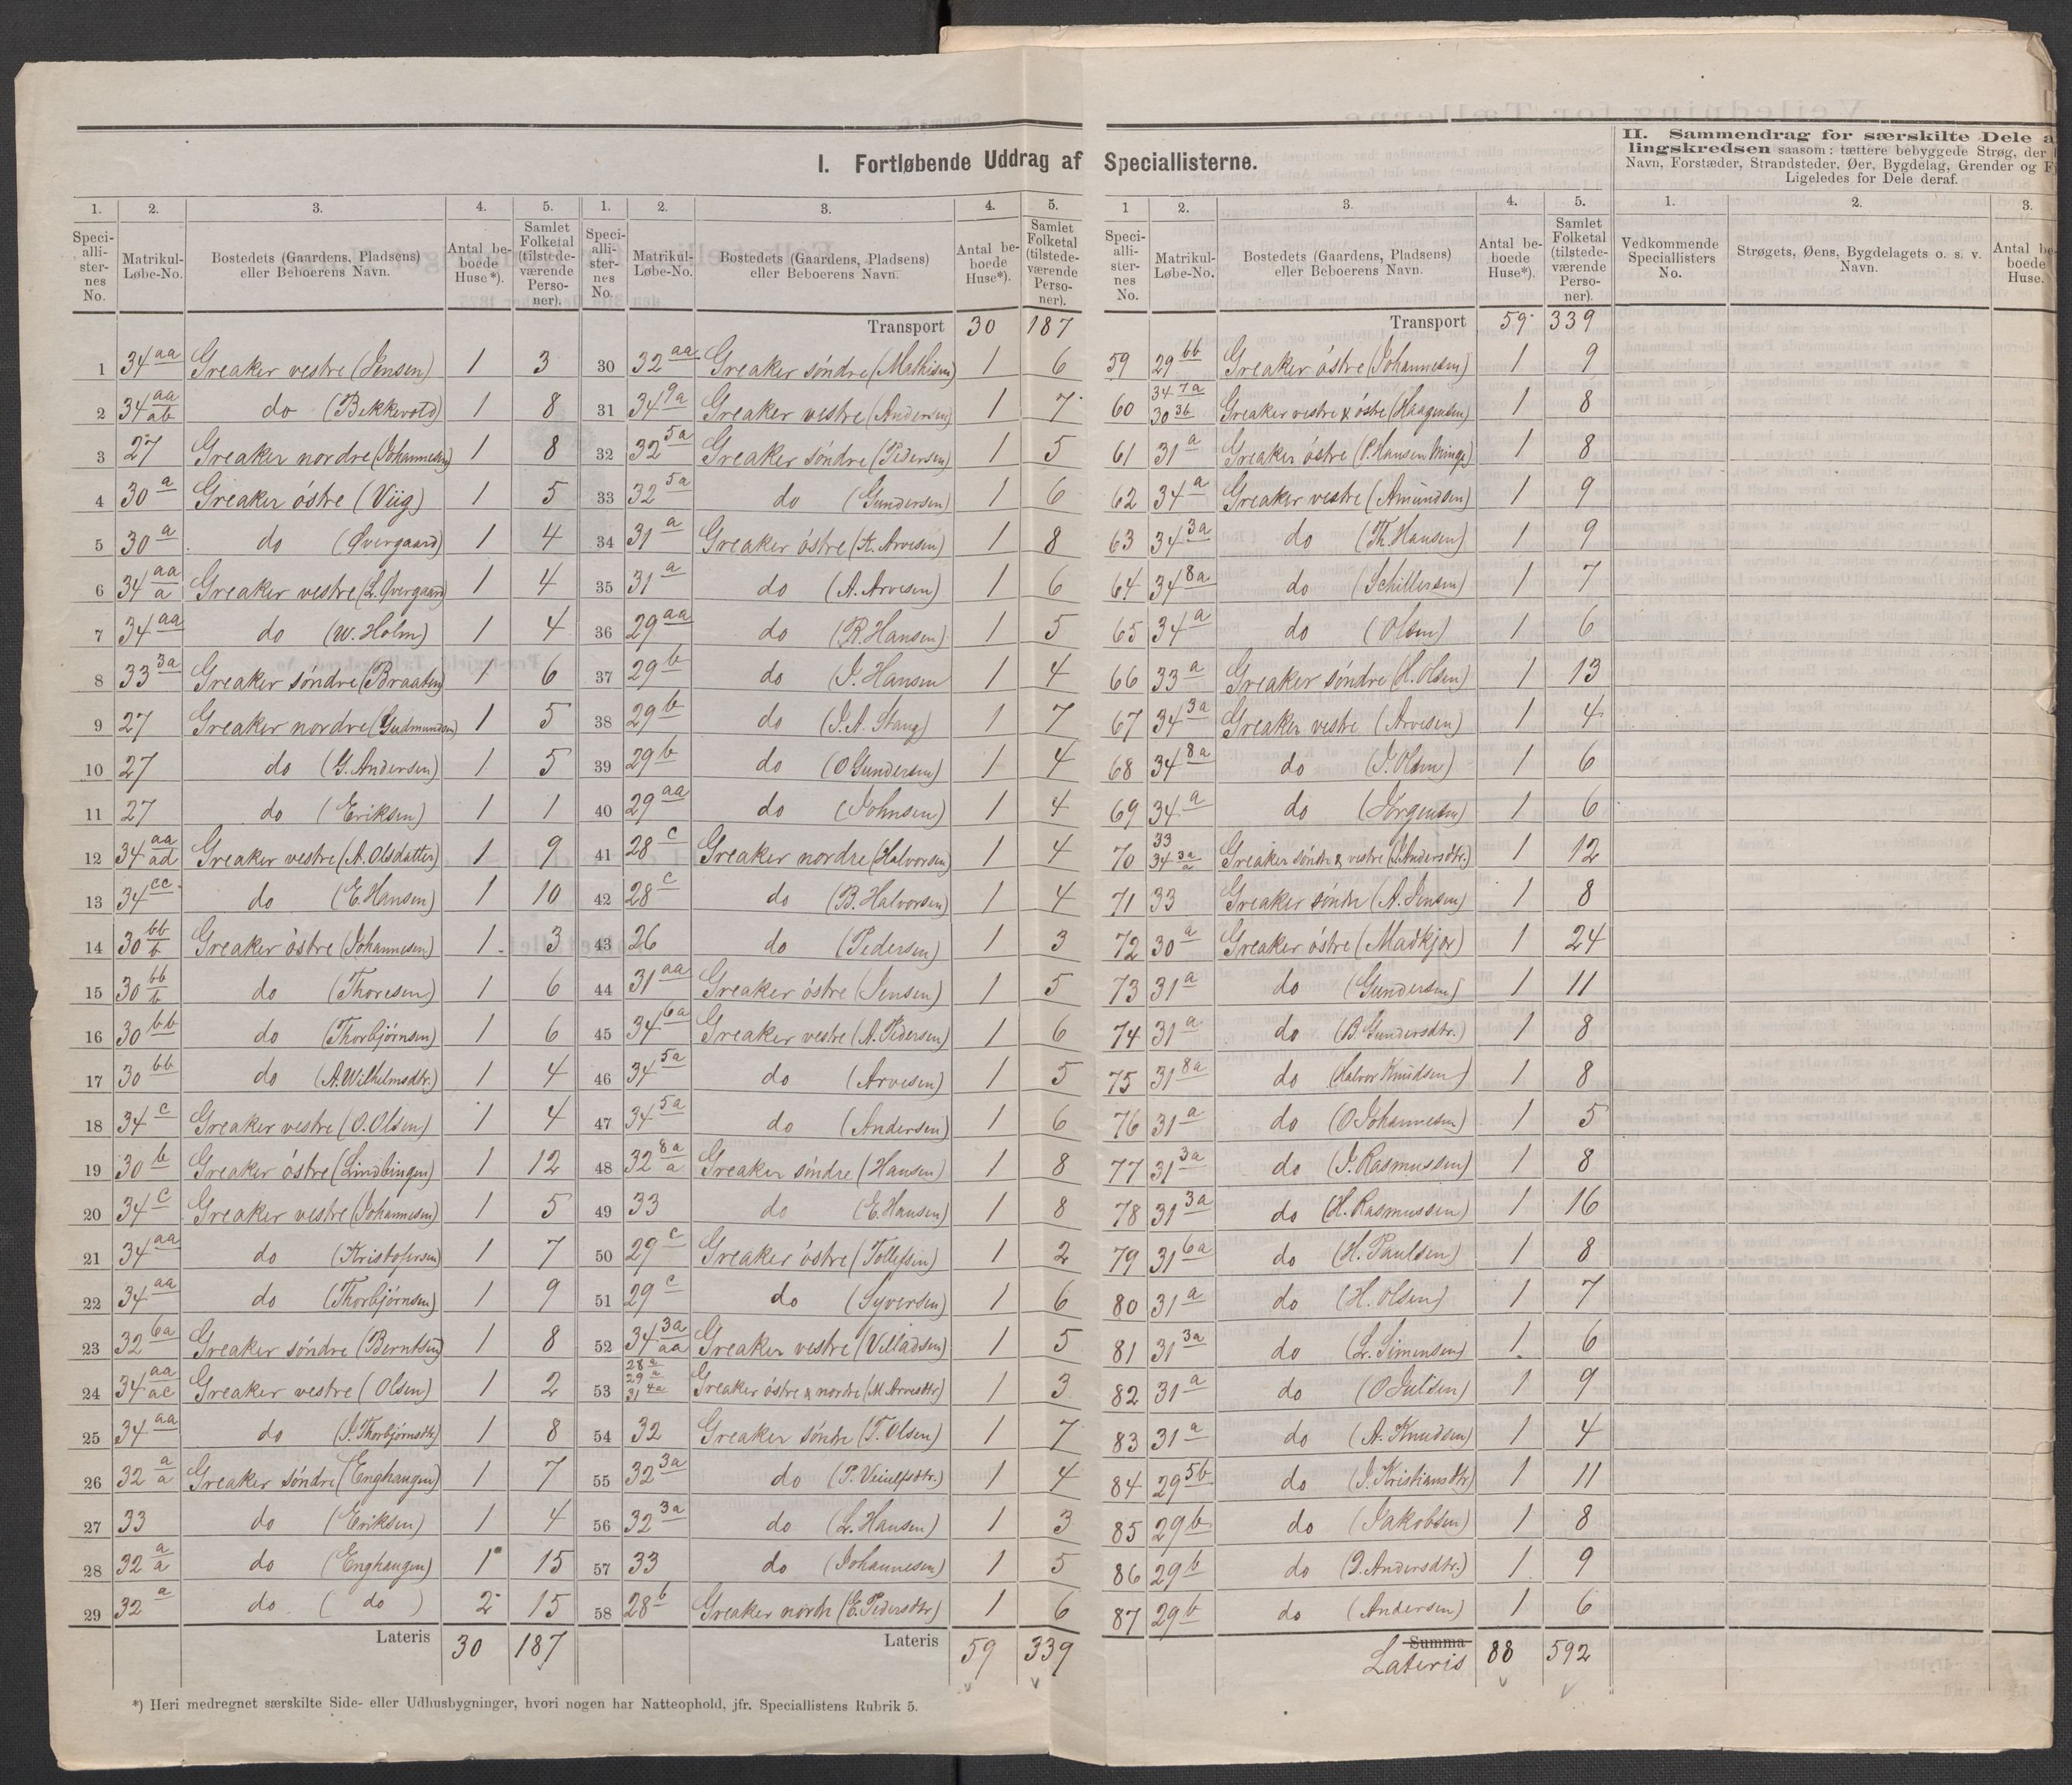 I. Fortløbende Uddrag af Speciallisterne.
1. 2. 3. 4. 5.
Speciallisternes No. Matrikul-Løbe-No. Bostedets (Gaardens, Pladsens) eller Beboerens Navn. Antal beboede Huse*). Samlet Folketal (tilstedeværende Personer).
1 34 aa Greaker vestre (Jensen) 1 3
2 34 aa/ab do (Bekkevold) 1 8
3 27 Greaker nordre (Johannesen) 1 8
4 30 a Greaker östre (Viig) 1 5
5 30 a do (Øvergaard) 1 4
6 34 aa/a Greaker vestre (L. Øvergaard) 1 4
7 34 aa do (W. Holm) 1 4
8 33 3a Greaker söndre (Braaten) 1 6
9 27 Greaker nordre (Gudmundsen) 1 5
10 27 do (G. Andersen) 1 5
11 27 do (Eriksen) 1 1
12 34 aa/ad Greaker vestre (A. Olsdatter) 1 9
13 34 cc do (E. Hansen) 1 10
14 30 bb/b Greaker östre (Johannesen) 1 3
15 30 bb/b do (Thoresen) 1 6
16 30 bb do (Thorbjørnsen) 1 6
17 30 bb do (A. Wilhelmsdtr.) 1 4
18 34 c Greaker vestre (O. Olsen) 1 4
19 30 b Greaker östre (Lindbingen) 1 12
20 34 c Greaker vestre (Johannesen) 1 5
21 34 aa do (Kristofersen) 1 7
22 34 aa do (Thorbjørnsen) 1 9
23 32 6a Greaker söndre (Berntsen) 1 8
24 34 aa/ac Greaker vestre (Olsen) 1 2
25 34 aa do (J. Thorbjørnsdtr) 1 8
26 32 a/a Greaker söndre (Enghaugen) 1 7
27 33 do (Eriksen) 1 4
28 32 a/a do (Enghaugen) 1 15
29 32 a do (do) 2 15
Lateris 30 187
*) Heri medregnet særskilte Side- eller Udhusbygninger, hvori nogen har Natteophold, jfr. Speciallistens Rubrik 5.
1. 2. 3. 4. 5.
Speciallisternes No. Matrikul-Løbe-No. Bostedets (Gaardens, Pladsens) eller Beboerens Navn. Antal beboede Huse*). Samlet Folketal (tilstedeværende Personer).
Transport 30 187
30 32 aa Greaker söndre (Mathisen) 1 6
31 34 9a Greaker vestre (Andersen) 1 7
32 32 5a Greaker söndre (Pedersen) 1 5
33 32 5a do (Gundersen) 1 6
34 31 a Greaker östre (K. Arvesen) 1 8
35 31 a do (A. Arvesen) 1 6
36 29 aa do (R. Hansen) 1 5
37 29 b do (J. Hansen 1 4
38 29 b do (J. A. Stang) 1 7
39 29 b do (O Gundersen) 1 4
40 29 aa do (Johnsen) 1 4
41 28 c Greaker nordre (Halvorsen) 1 4
42 28 c do (B. Halvorsen) 1 4
43 26 do (Pedersen) 1 3
44 31 aa Greaker östre (Jensen) 1 5
45 34 6a Greaker vestre (A. Pedersen) 1 6
46 34 5a do (Arvesen) 1 5
47 34 5a do (Andersen) 1 6
48 32 8a/a Greaker söndre (Hansen) 1 8
49 33 do (E. Hansen) 1 8
50 29 c Greaker östre (Tollefsen) 1 2
51 29 c do (Syversen) 1 6
52 34 3a/aa Greaker vestre (Villadsen) 1 5
53 28 a 29 a 31 4a Greaker östre & nordre (M. Arvesdtr) 1 3
54 32 Greaker söndre (T. Olsen) 1 7
55 32 3a do (P. Veiulfsdtr.) 1 4
56 32 3a do (L. Hansen) 1 3
57 33 do (Johannesen) 1 5
58 28 b Greaker nordre (E. Pedersdtr) 1 6
Lateris 59 339
1 2. 3. 4. 5.
Speciallisternes No. Matrikul-Løbe-No. Bostedets (Gaardens, Pladsens) eller Beboerens Navn. Antal beboede Huse*). Samlet Folketal (tilstedeværende Personer).
Transport 59 339
59 29 bb Greaker östre (Johannesen) 1 9
60 34 7a 30 3b Greaker vestre & östre (Haagensen) 1 8
61 31 a Greaker östre (P. Hansen Minge) 1 8
62 34 a Greaker vestre (Amundsen) 1 9
63 34 3a do (Th. Hansen) 1 9
64 34 8a do (Schillersen) 1 7
65 34 a do (Olsen) 1 6
66 33 a Greaker söndre (H. Olsen) 1 13
67 34 3a Greaker vestre (Arvesen) 1 4
68 34 8a do (J. Olsen) 1 6
69 34 a do (Jörgensen) 1 6
70 33 34 3a/a Greaker söndre & vestre (J. Andersdtr.) 1 12
71 33 Greaker söndre (A. Jensen) 1 8
72 30 a Greaker östre (Madkjor) 1 24
73 31 a do (Gundersen) 1 11
74 31 a do (B. Gundersdtr.) 1 8
75 31 8a do (Halvor Knudsen) 1 8
76 31 a do (O Johannesen) 1 5
77 31 3a do (J. Rasmussen) 1 8
78 31 3a do (H. Rasmussen) 1 16
79 31 6a do (H. Paulsen) 1 8
80 31 a do (H. Olsen) 1 7
81 31 3a do (L. Simensen) 1 6
82 31 a do (O Julsen) 1 9
83 31 a do (A. Knudsen) 1 4
84 29 5b do (J. Kristiansdtr) 1 11
85 29 b do (Jakobsen) 1 8
86 29 b do (J. Andersdtr.) 1 9
87 29 b do (Andersen) 1 6
Summa
Lateris 88 592
II. Sammendrag for særskilte Dele a
lingskredsen saasom: tættere bebyggede Strøg, der
Navn, Forstæder, Strandsteder, Øer, Bygdelag, Grender og F
Ligeledes for Dele deraf.
1. 2. 3.
Vedkommende Speciallisters No. Strøgets, Øens, Bygdelagets o. s. v. Navn. Antal beboede Huse.